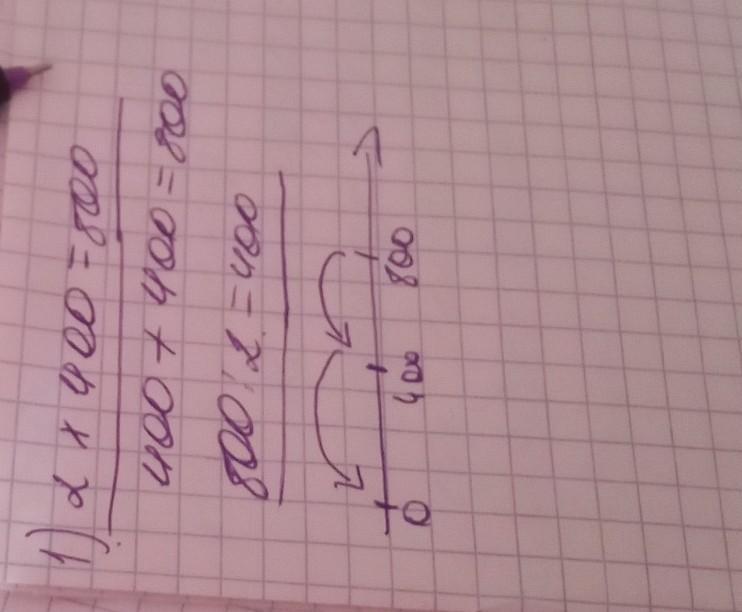 1) 2 x 400 = 800
400 + 400 = 800
800 : 2 = 400
0 400 800